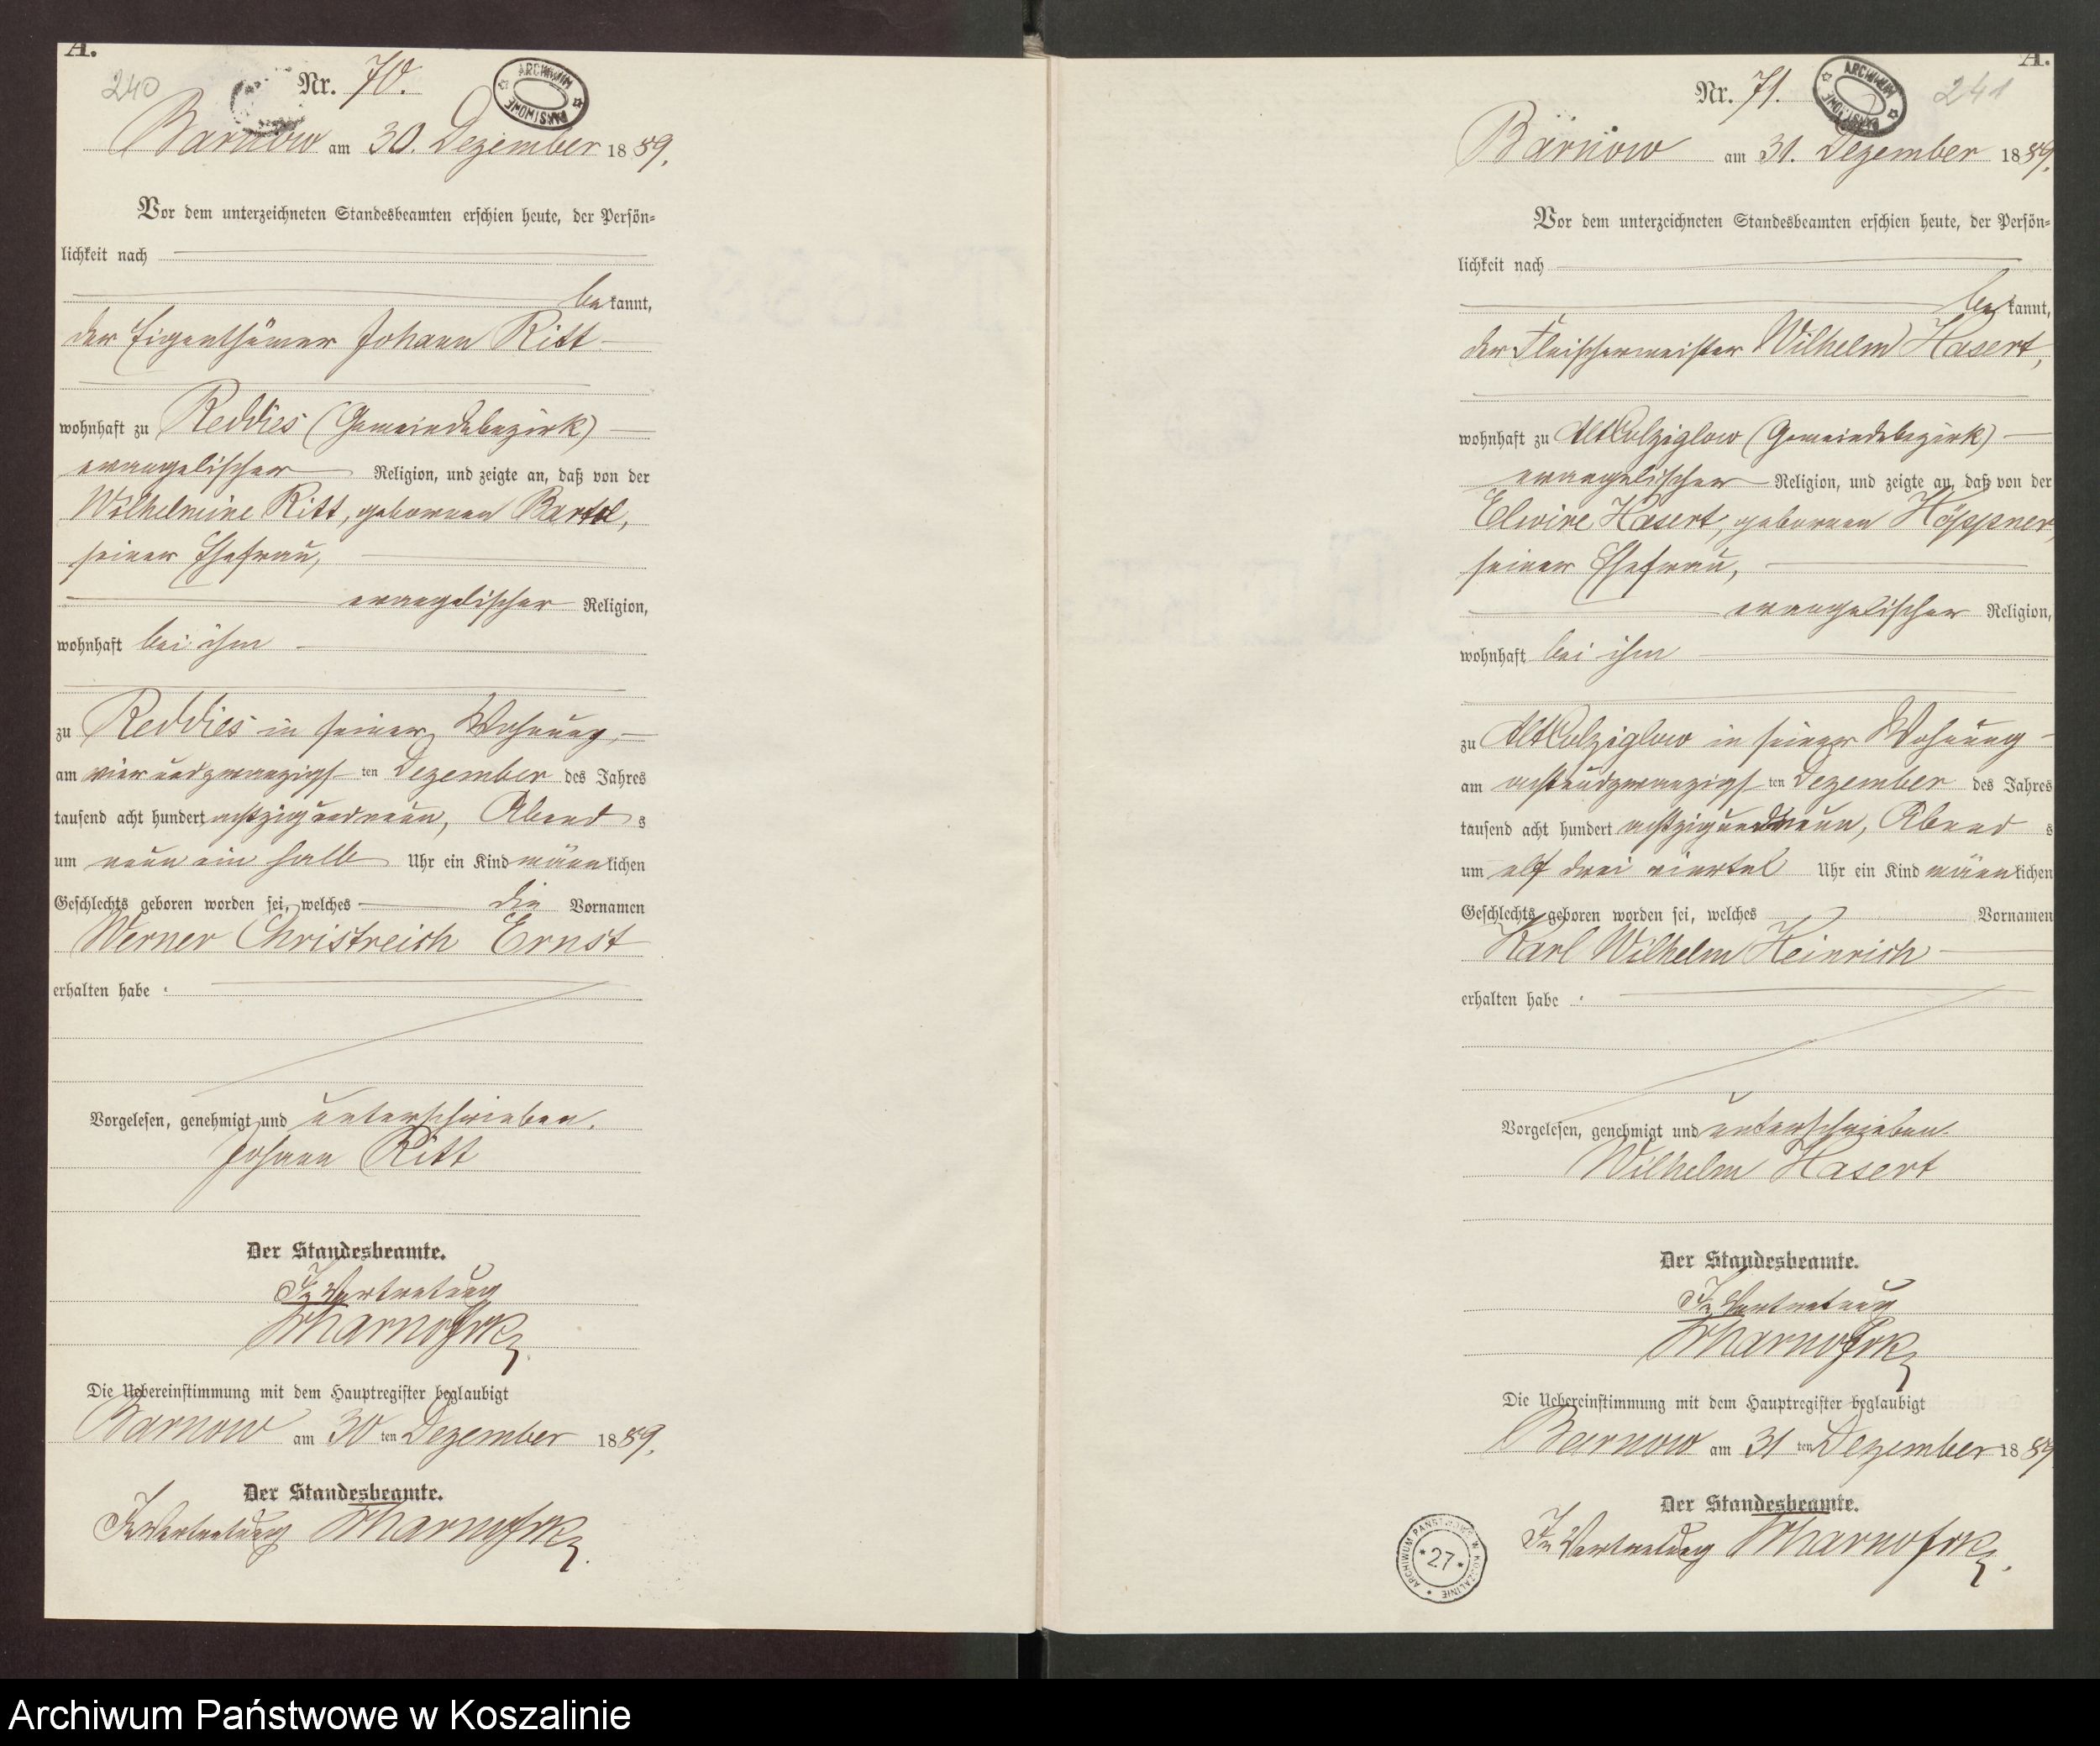 A.
240
Nr. 70.
ARCHIWUM PAŃSTWOWE
Barnow am 30. Dezember 1889.
Vor dem unterzeichneten Standesbeamten erschien heute, der Persön-
lichkeit nach
be kannt,
der Eigenthümer Johann Ritt
wohnhaft zu Reddies (Gemeindebezirk)
evangelischer Religion, und zeigte an, daß von der
Wilhelmine Ritt, geborenen Bartel,
seiner Ehefrau,
evangelischer Religion,
wohnhaft bei ihm
zu Reddies in seiner Wohnung,
am vierundzwanzigs ten Dezember des Jahres
tausend acht hundert achtzigundneun, Abend s
um neun ein halb Uhr ein Kind männlichen
Geschlechts geboren worden sei, welches die Vornamen
Werner Christreich Ernst
erhalten habe.
Vorgelesen, genehmigt und unterschrieben.
Johann Ritt
Der Standesbeamte.
In Vertretung
Die Uebereinstimmung mit dem Hauptregister beglaubigt
Barnow am 30 ten Dezember 1889.
Der Standesbeamte.
In Vertretung
A.
241
Nr. 71.
ARCHIWUM PAŃSTWOWE
Barnow am 31. Dezember 1889.
Vor dem unterzeichneten Standesbeamten erschien heute, der Persön-
lichkeit nach
be kannt,
der Fleischermeister Wilhelm Hasert,
wohnhaft zu Alt Colziglow (Gemeindebezirk)
evangelischer Religion, und zeigte an, daß von der
Elwire Hasert, geborenen Höppner,
seiner Ehefrau,
evangelischer Religion,
wohnhaft bei ihm
zu Alt Colziglow in seiner Wohnung
am achtundzwanzigs ten Dezember des Jahres
tausend acht hundert achtzigundneun, Abend s
um elf drei viertel Uhr ein Kind männlichen
Geschlechts geboren worden sei, welches Vornamen
Karl Wilhelm Heinrich
erhalten habe.
Vorgelesen, genehmigt und unterschrieben.
Wilhelm Hasert
Der Standesbeamte.
In Vertretung
Die Uebereinstimmung mit dem Hauptregister beglaubigt
Barnow am 31 ten Dezember 1889
Der Standesbeamte.
In Vertretung
ARCHIWUM PAŃSTWOWE W KOSZALINIE
* 27 *
Archiwum Państwowe w Koszalinie